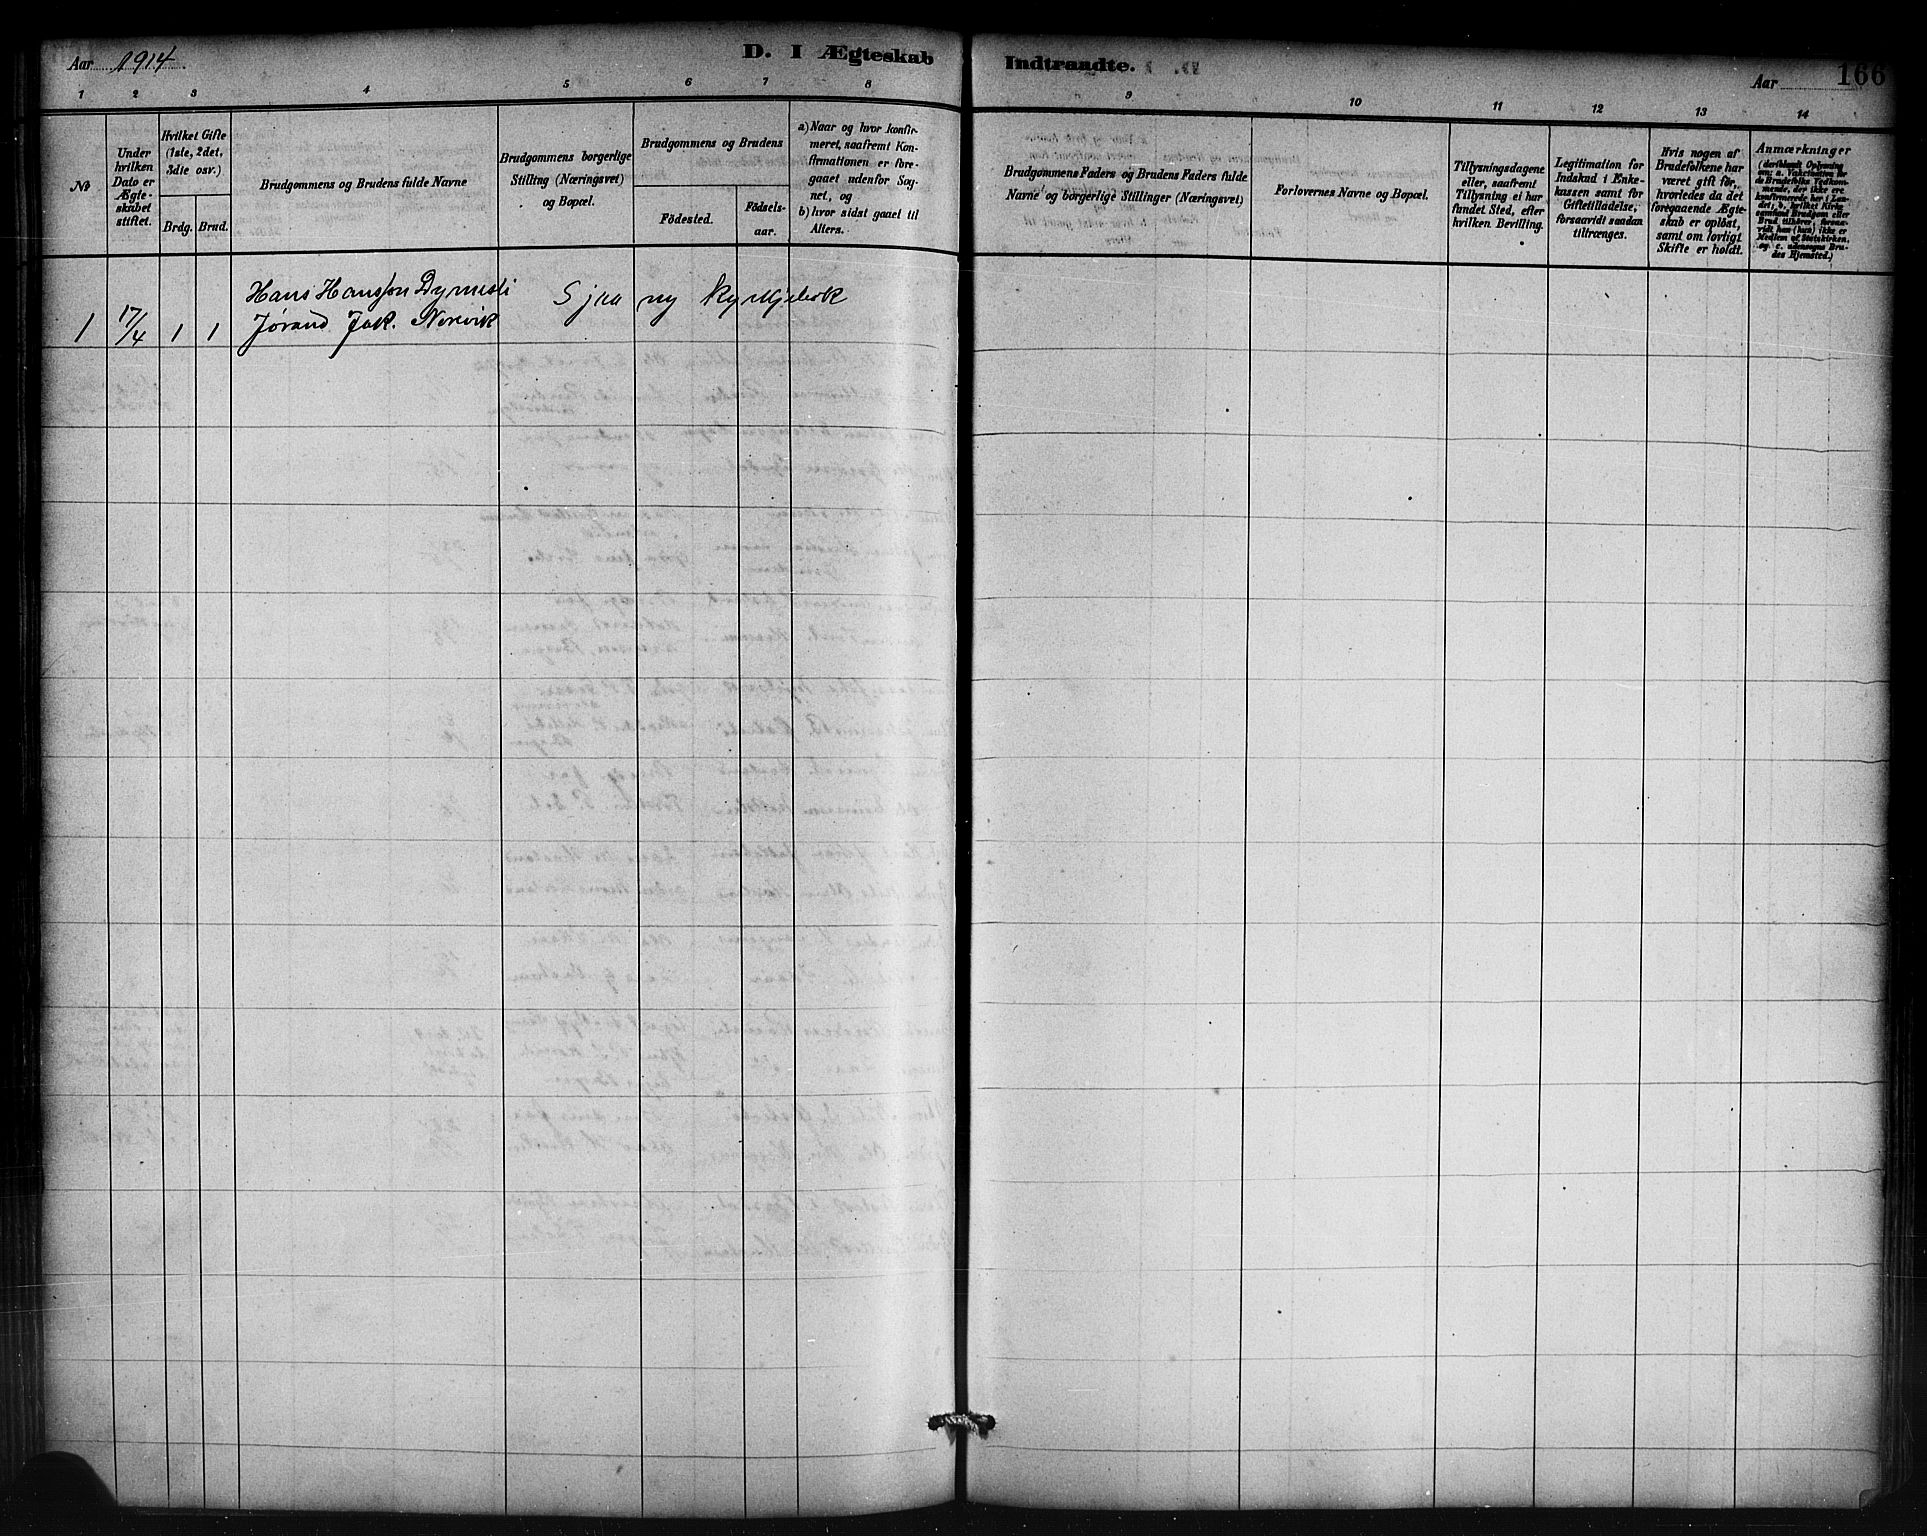 Aar 1914
D. I Ægteskab
Indtraadte.
Aar
166
1 2 3 4 5 6 7 8
9 10 11 12 13 14
No
Under
hvilken
Dato er
Ægte-
skabet
stiftet.
Hvilket Gifte
(1ste, 2det,
3die osv.)
Brdg. Brud.
Brudgommens og Brudens fulde Navne
Brudgommens borgerlige
Stilling (Næringsvei)
og Bopæl.
Brudgommens og Brudens
Födested.
Födsels-
aar.
a) Naar og hvor konfir-
meret, saafremt Kon-
firmationen er fore-
gaaet udenför Sog-
net, og
b) hvor sidst gaaet til
Alters.
Brudgommens Faders og Brudens Faders fulde
Navne og borgerlige Stillinger (Næringsvei)
Forlovernes Navne og Bopæl.
Tillysningsdagene
eller, saafremt
Tillysning ei har
fundet Sted, efter
hvilken Bevilling.
Legitimation for
Indskud i Enke-
kassen samt for
Giftetilladelse,
forsaavidt saadan
tiltrænges.
Hvis nogen af
Brudefolkene har
været gift för,
hvorledes da det
foregaaende Ægte-
skab er oplöst,
samt om lovligt
Skifte er holdt.
Anmærkninger
(deriblandt Oplysning
om: a. Vakcination for
de Brudefolks Vedkom-
mende, der ikke ere
konfirmerede her i Lan-
det, b. hvilket Kirke-
samfund Brudgom eller
Brud tilhører, forsaa-
vidt han (hun) ikke er
Medlem af Statskirken,
og c. udensogns Bru-
des Hjemsted.)
Hans Hansson Dymesli Sjaa ny kyrkjebok
1 17/4 1 1 Jørand Jak. Norevik